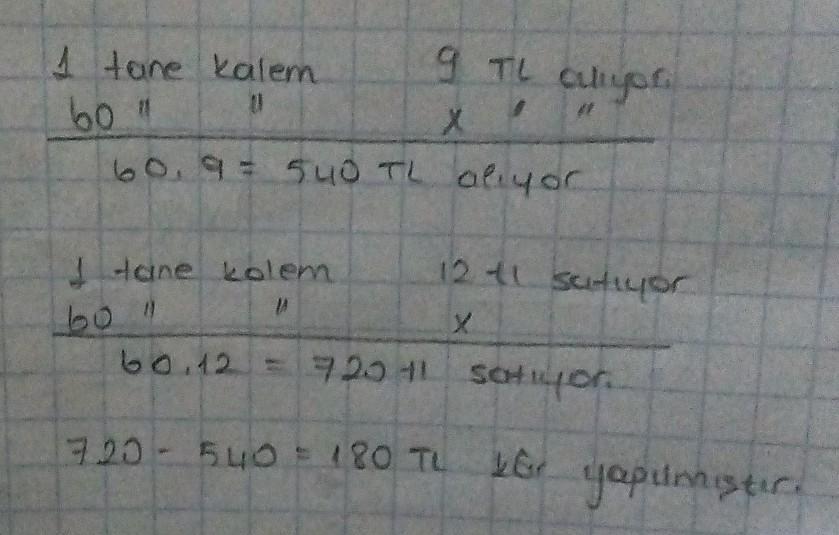 1 tane kalem 9 TL alıyor.
60 " " x " "
60.9 = 540 TL alıyor
1 tane kalem 12 tl satıyor
60 " " x
60.12 = 720 tl satıyor.
720 - 540 = 180 TL kâr yapılmıştır.